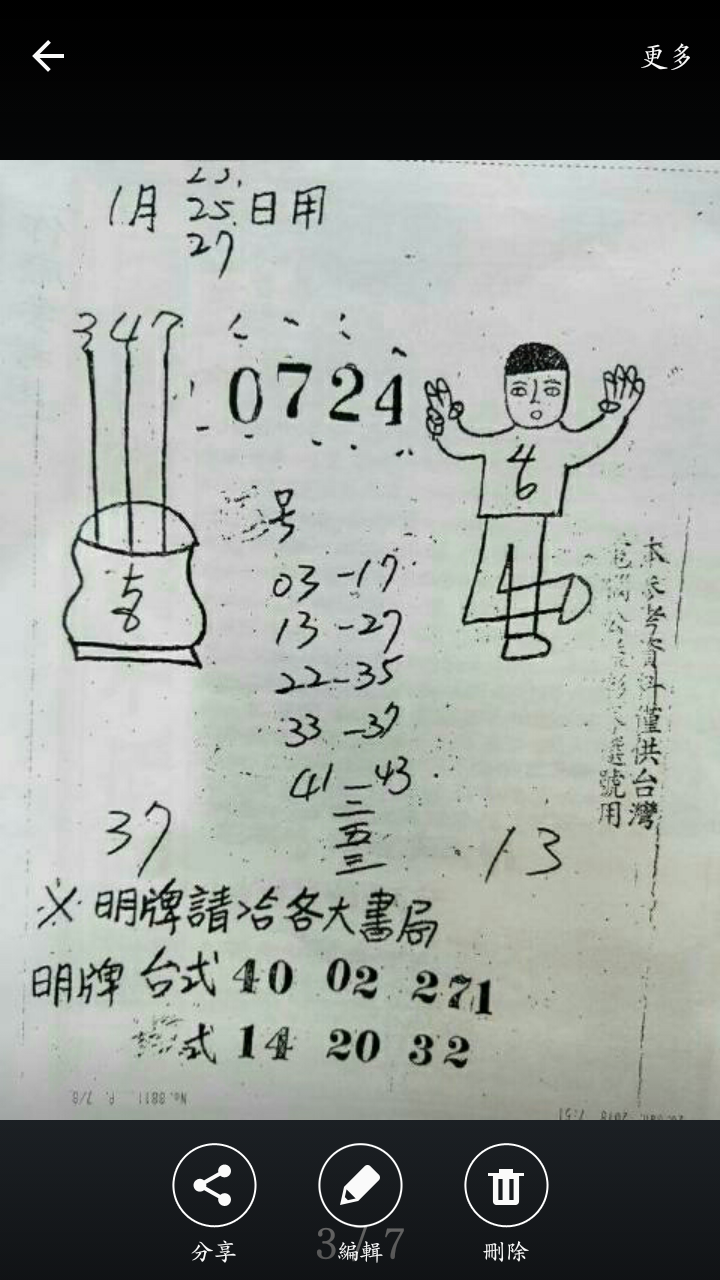 更多
1月 23. 25. 27 日用
3 4 7
0724
4
6
5
8
号
03-17
13-27
22-35
33-37
41-43
一
二
五
三
37
13
本參考資料僅供台灣
選號用
※明牌請洽各大書局
明牌 台式 40 02 271
式 14 20 32
No. 8811 P. 7/8
3 / 7
分享
編輯
刪除